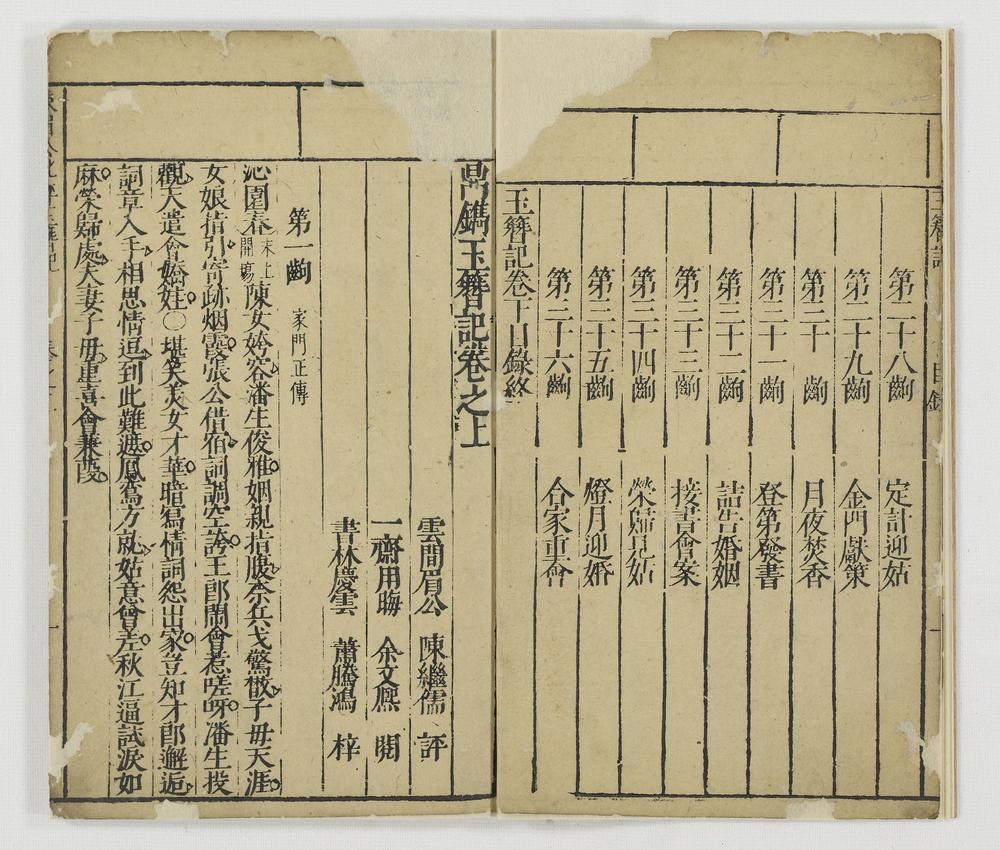 第二十八齣 定計迎姑
第二十九齣 金門獻策
第三十齣 月夜焚香
第三十一齣 登第發書
第三十二齣 詰告婚姻
第三十三齣 接書會案
第三十四齣 榮歸見姑
第三十五齣 燈月迎婚
第三十六齣 合家重會
玉簪記卷下目錄終
鼎鐫玉簪記卷之上
雲間眉公 陳繼儒 評
一齋用晦 余文熈 閱
書林慶雲 蕭騰鴻 梓
第一齣 家門正傳
沁園春 末上開塲 陳女姱容潘生俊雅姻親指腹奈兵戈驚散子毋天涯
女娘指引寄跡烟霞張公借宿詞調空誇王郎鬧會惹嗟呀潘生投
觀天遣會嬌娃〇堪笑美女才華暗寫情詞怨出家豈知才郎邂逅
詞章入手相思情逗到此難遮鳳鸞方就姑意會差秋江逼試淚如
麻榮歸處夫妻子毋重喜會蒹葭